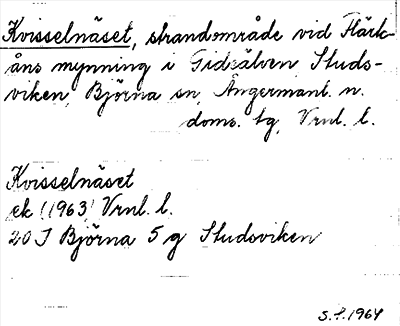 Kvisselnäset, strandområde vid Flärk-
åns mynning i Gideälven, Studs-
viken, Björna sn, Ångermanl. n.
doms. tg, Vrnl. l.
Kvisselnäset
ek (1963) Vrnl. l.
20 J Björna 5 g Studsviken
S.f. 1964